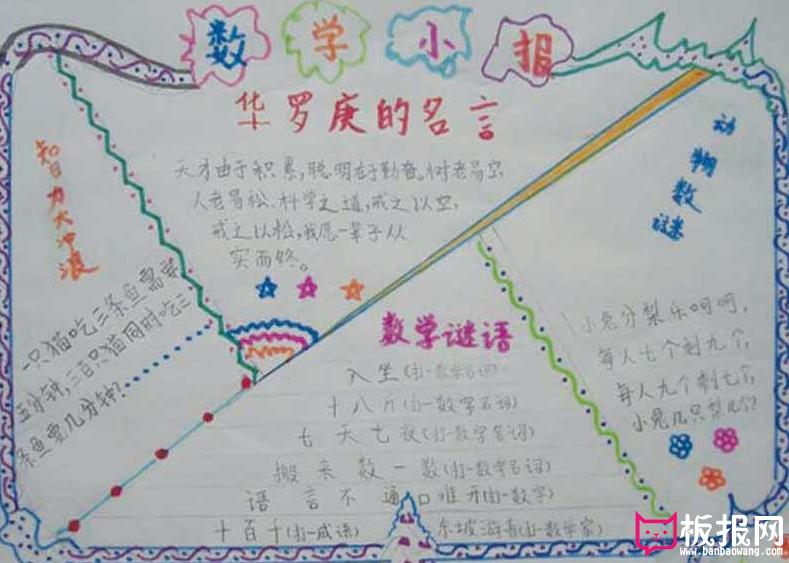 数学小报
华罗庚的名言
天才由于积累,聪明在于勤奋。树老易空,
人老易松,科学之道,戒之以空,
戒之以松,我愿一辈子从
实而终。
智力大冲浪
一只猫吃三条鱼需要
五分钟,三百只猫同时吃三
条鱼要几分钟?
动物数谜
小兔分梨乐呵呵,
每人七个剩九个,
每人九个剩七个,
小兔几只梨几个?
数学谜语
入坐(打一数学名词)
十八斤(打一数学名词)
七天七夜(打一数学名词)
搬来数一数(打一数学名词)
语言不通口难开(打一数字)
十百千(打一成语)
东坡游春(打一数学家)
板报网
www.banbaowang.com